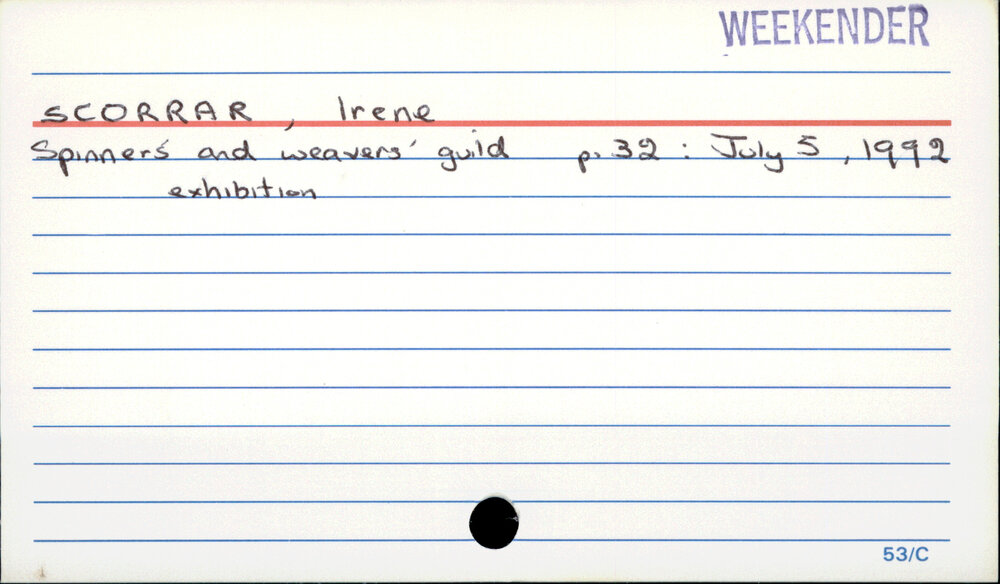 WEEKENDER
SCORRAR, Irene
Spinners' and weavers' guild p. 32 : July 5, 1992
exhibition
53/C